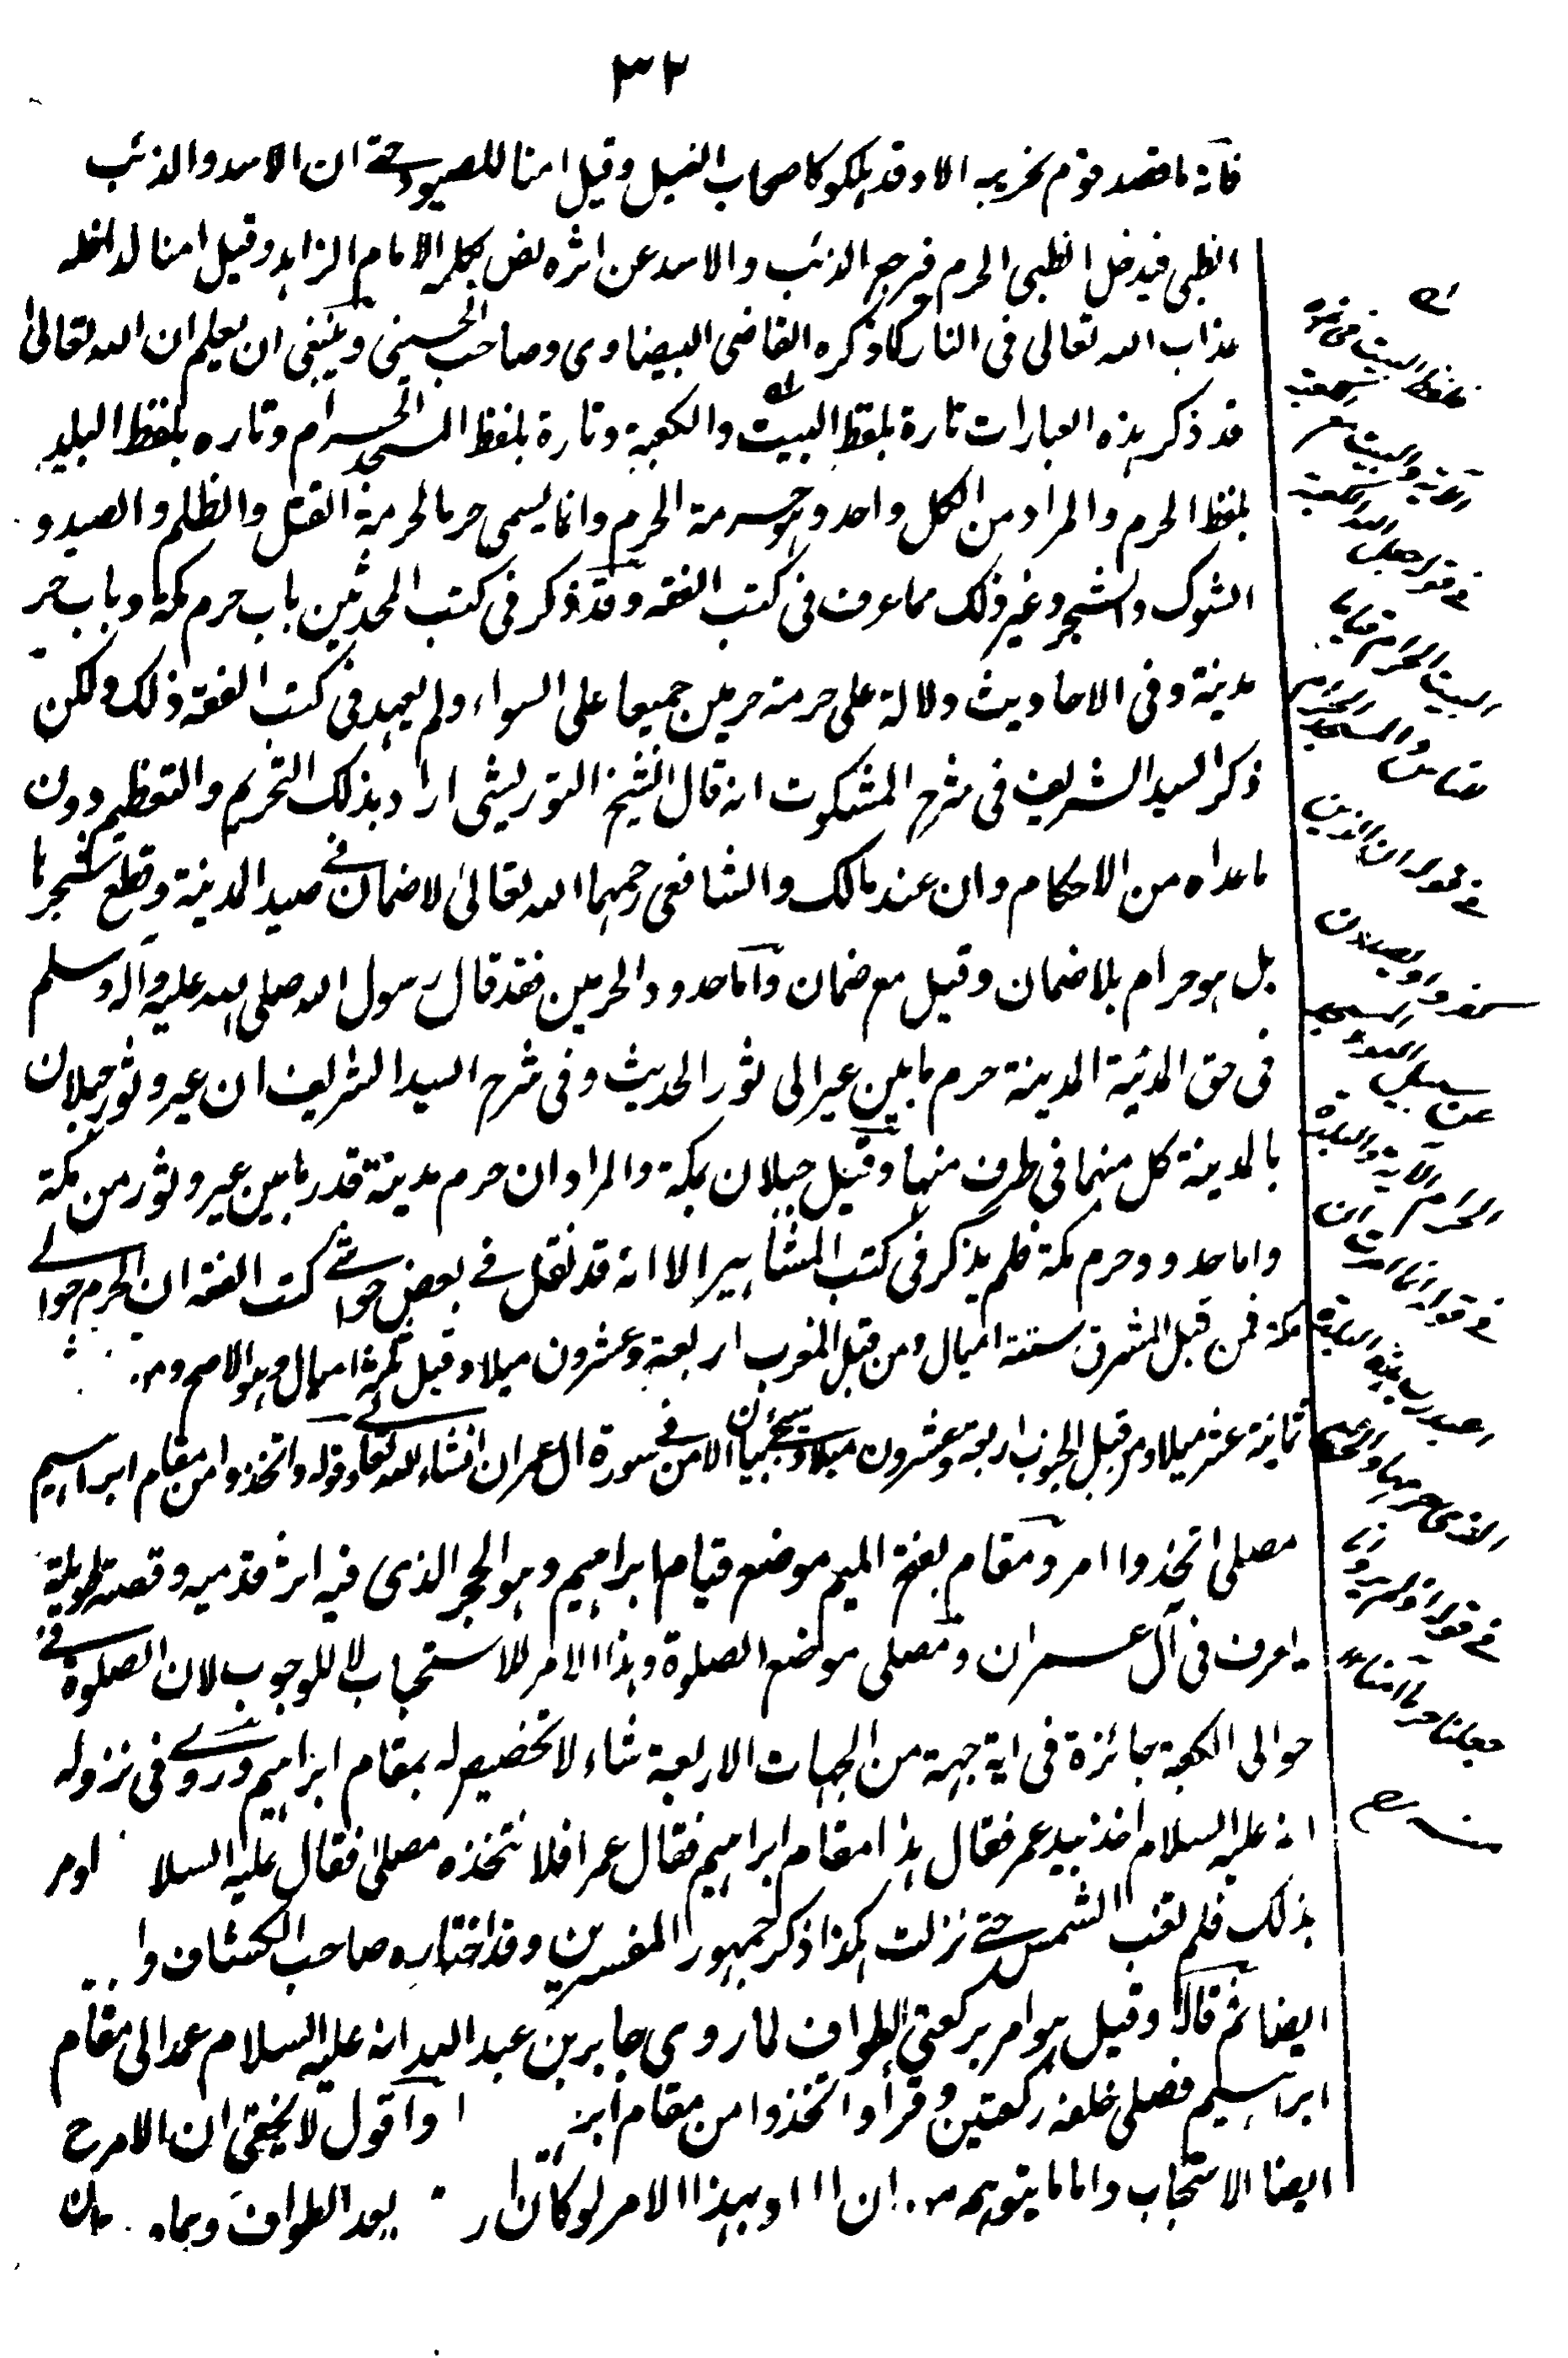 ٣٢
فانه ما قصد قوم تخريبه الا وقد هلكو كاصحاب الفيل وقيل امنا للصيود حتے ان الاسد والذئب
الظبى فيدخل الظبى الحرم فيرجع الذئب والاسد عن اثره نص بكله الامام الزاهد وقيل امنا لداخله
عذاب الله تعالى فى النار كما ذكره القاضى البيضاوى وصاحب الحسينى وينبغى ان يعلم ان الله تعالىٰ
قد ذكر هذه العبارات تارة بلفظ البيت والكعبة وتارة بلفظ المسجد الحرام وتاره بلفظ البلد
بلفظ الحرم والمراد من الكل واحد وهو حرمة الحرم وانما يسمى حرما لحرمة القتل والظلم والصيد و
الشوك والشجر وغير ذلك مما عرف فى كتب الفقه وقد ذكر فى كتب المحدثين باب حرم مكة وباب حر
مدينة وفى الاحاديث دلالة على حرمة حرمين جميعا على السواء ولم يعهد فى كتب الفقه ذلك ولكن
ذكر السيد الشريف فى شرح المشكوت انه قال الشيخ التوربشتى اراد بذلك التحريم والتعظيم دون
ما عداه من الاحكام وان عند مالك والشافعى رحمهما الله تعالىٰ لا ضمان فے صيد المدينة وقطع شجرها
بل هو حرام بلا ضمان وقيل مع ضمان واما حدود الحرمين فقد قال رسول الله صلى الله عليه واله وسلم
فى حق المدينة المدينة حرم ما بين عير الى ثور الحديث وفى شرح السيد الشريف ان عير وثور جبلان
بالمدينة كل منهما فى طرف منها وقيل جبلان بمكة والمراد ان حرم مدينة قدر ما بين عير وثور من مكة
واما حدود حرم مكة فلم يذكر فى كتب المشاهير الا انه قد نقل فے بعض حواشے كتب الفقه ان الحرم حوالے
مكة فمن قبل المشرق ستة اميال ومن قبل المغرب اربعة وعشرون ميلا وقيل ثلثة اميال وهو الاصح ومن
ثمانية عشر ميلا ومن قبل الجنوب اربعة وعشرون ميلا وسيجئ بيان الامن فے سورة ال عمران انشاء الله تعالے وقوله واتخذوا من مقام ابراهيم
مصلى اتخذوا امر ومقام بفتح الميم موضع قيام ابراهيم وهو الحجر الذى فيه اثر قدميه وقصته طويلة
يعرف فى آل عمران ومصلى موضع الصلوة وهذا الامر للاستحباب لا للوجوب لان الصلوة فے
حوالى الكعبة جائزة فى اية جهة من الجهات الاربعة شاء لا تخصيص له بمقام ابراهيم وروے فى نزوله
انه عليه السلام اخذ بيد عمر فقال هذا مقام ابراهيم فقال عمر افلا نتخذه مصلى فقال عليه السلا اومر
بذلك فلم تغب الشمس حتے نزلت هكذا ذكر جمهور المفسرين وقد اختاره صاحب الكشاف وا
ايضا ثم قالا وقيل هو امر بركعتى الطواف لما روى جابر بن عبد الله انه عليه السلام عمد الى مقام
ابراهيم فصلى خلفه ركعتين وقرأ واتخذوا من مقام ابر واقول لا يخفى ان الامر ح
ايضا الاستحباب واما ما يتوهم من ان بهذا الامر لو كان بعد الطواف وبماه
لفظ البيت
والبيت
فى قوله جعل الله الكعبة
البيت الحرام قياما
والمسجد الحرام
فى قوله ان الذين
كفروا ويصدون
عن سبيل الله والمسجد
الحرام الآية والبلدة
فى قوله انما امرت ان
اعبد رب هذه البلدة
الذى حرمها والحرم
فى قوله اولم يروا
جعلنا حرما آمنا
منه